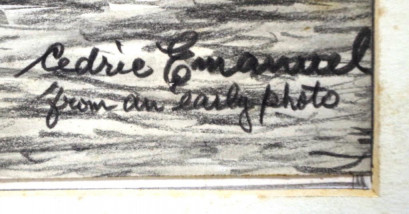 Cedric Emanuel
from an early photo